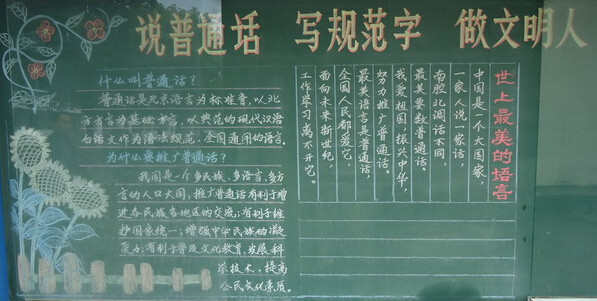 说普通话 写规范字 做文明人
什么叫普通话?
普通话是北京语言为标准音,以北
方言为基础方言,以典范的现代汉语
白话文作为语法规范,全国通用的语言。
为什么要推广普通话?
我国是一个多民族、多语言、多方
言的人口大国,推广普通话有利于增
进各民族各地区的交流;有利于维
护国家统一;增强中华民族的凝
聚力;有利于普及文化教育,发展科
学技术,提高
全民文化素质。
世上最美的语言
中国是一个大国家,
一家人说一家话,
南腔北调话不同,
最美要数普通话。
我爱祖国,振兴中华,
努力推广普通话。
最美语言是普通话,
全国人民都爱它,
面向未来新世纪,
工作学习离不开它。